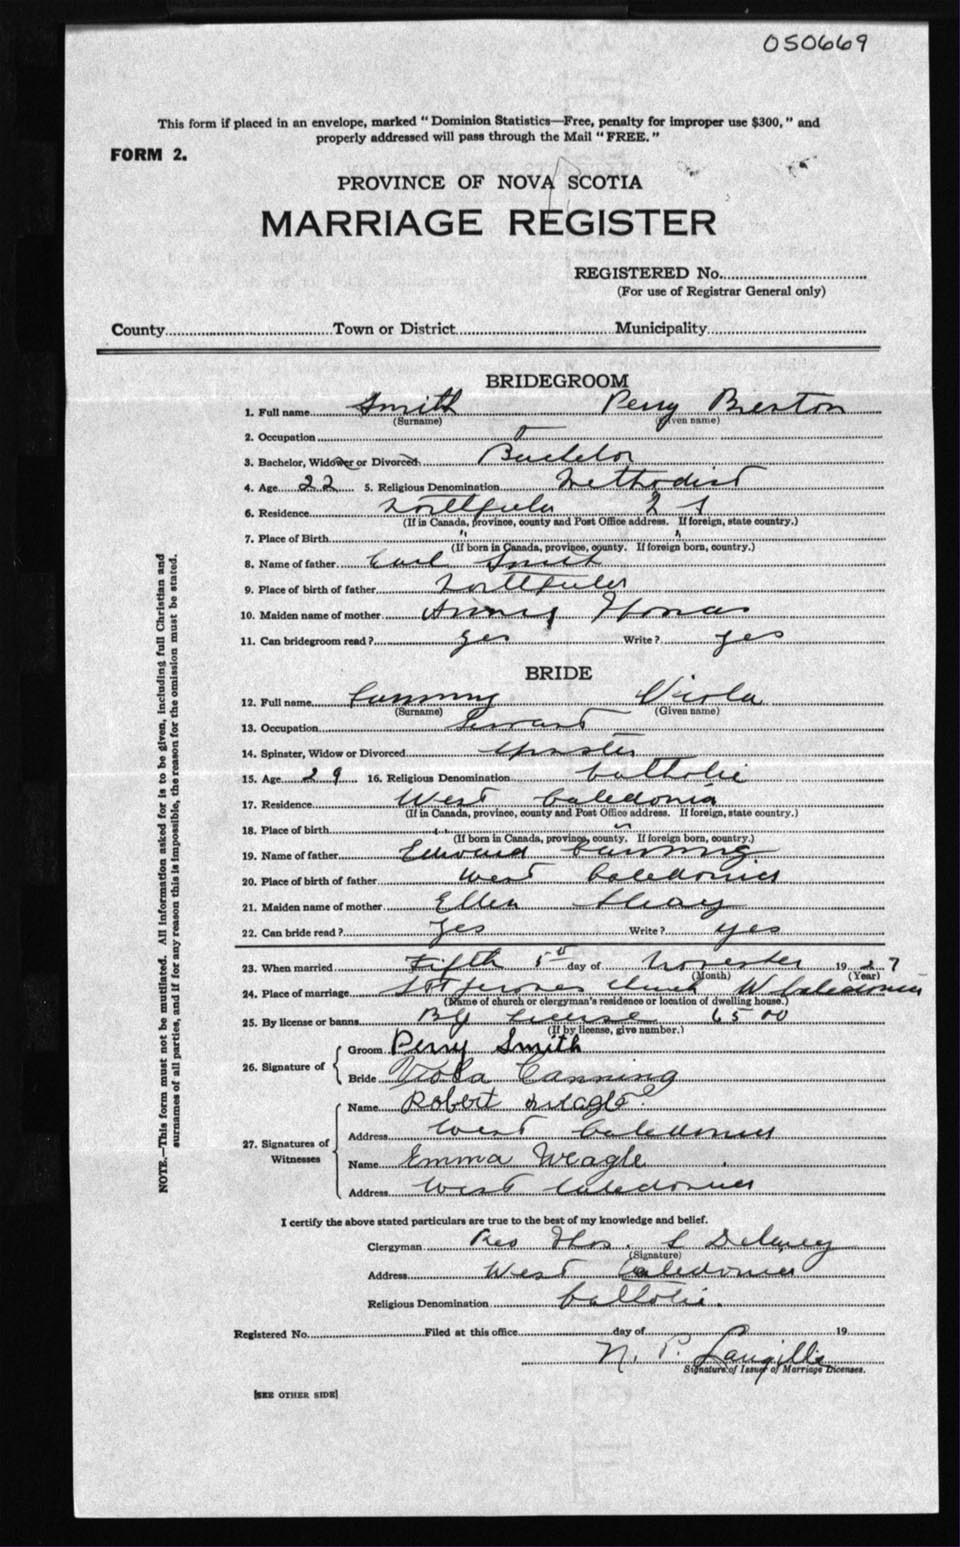 050669
This form if placed in an envelope, marked "Dominion Statistics—Free, penalty for improper use $300," and
properly addressed will pass through the Mail "FREE."
FORM 2.
PROVINCE OF NOVA SCOTIA
MARRIAGE REGISTER
REGISTERED No.
(For use of Registrar General only)
County Town or District Municipality
BRIDEGROOM
1. Full name Smith Perry
(Surname) (Given name)
2. Occupation
3. Bachelor, Widower or Divorced Bachelor
4. Age 22 5. Religious Denomination Methodist
6. Residence Northfield
(If in Canada, province, county and Post Office address. If foreign, state country.)
7. Place of Birth " "
(If born in Canada, province, county. If foreign born, country.)
8. Name of father Earl Smith
9. Place of birth of father Northfield
10. Maiden name of mother
11. Can bridegroom read? yes Write? yes
BRIDE
12. Full name Canning Viola
(Surname) (Given name)
13. Occupation Servant
14. Spinster, Widow or Divorced Spinster
15. Age 29 16. Religious Denomination Catholic
17. Residence West Caledonia
(If in Canada, province, county and Post Office address. If foreign, state country.)
18. Place of birth " "
(If born in Canada, province, county. If foreign born, country.)
19. Name of father Edward Canning
20. Place of birth of father West Caledonia
21. Maiden name of mother Ellen
22. Can bride read? Yes Write? yes
23. When married Fifth 5th day of November 1927
(Month) (Year)
24. Place of marriage church W Caledonia
(Name of church or clergyman's residence or location of dwelling house.)
25. By license or banns By License 6500
(If by license, give number.)
26. Signature of
Groom Perry Smith
Bride Viola Canning
27. Signatures of Witnesses
Name Robert
Address West Caledonia
Name Emma Weagle
Address West Caledonia
I certify the above stated particulars are true to the best of my knowledge and belief.
Clergyman Rev Thos. L Delaney
(Signature)
Address West Caledonia
Religious Denomination Catholic.
Registered No. Filed at this office day of 19
N. P. Langille
Signature of Issuer of Marriage Licenses.
[SEE OTHER SIDE]
NOTE.—This form must not be mutilated. All information asked for is to be given, including full Christian and
surnames of all parties, and if for any reason this is impossible, the reason for the omission must be stated.